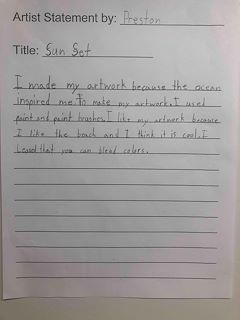 Artist Statement by: Preston
Title: Sun Set
I made my artwork because the ocean
inspired me. To make my artwork, I used
paint and paint brushes. I like my artwork because
I like the beach and I think it is cool. I
Leased that you can blead colors.